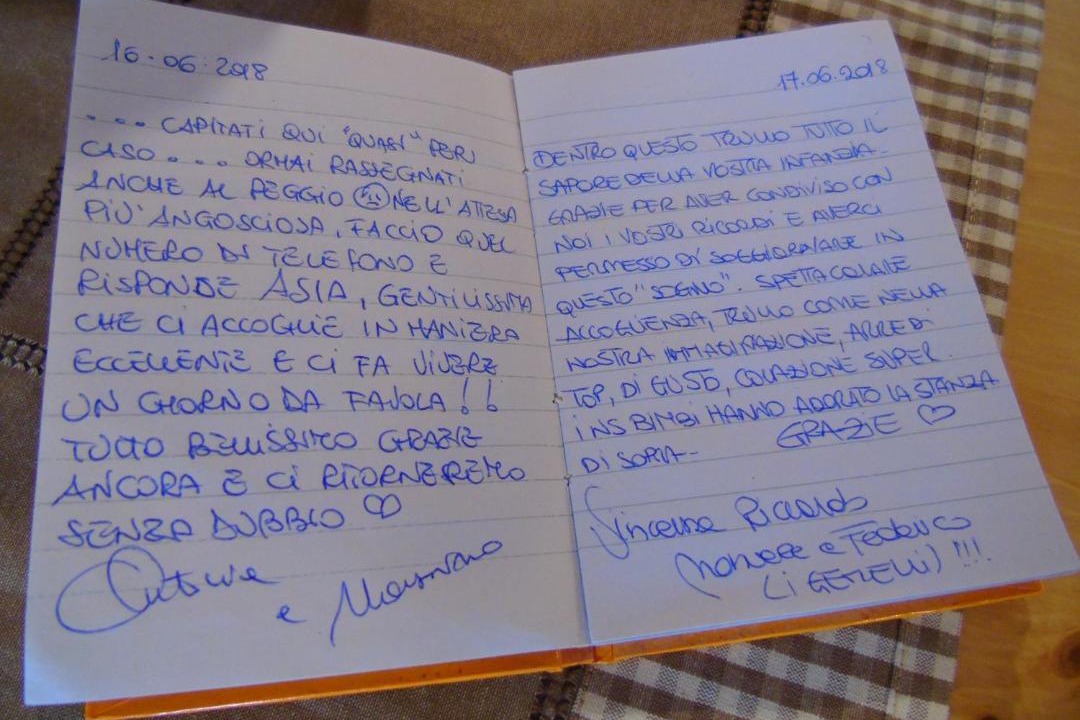 16.06.2018
.... CAPITATI QUI "QUASI" PER
CASO .... ORMAI RASSEGNATI
ANCHE AL PEGGIO NELL'ATTESA
PIU' ANGOSCIOSA, FACCIO QUEL
NUMERO DI TELEFONO E
RISPONDE ASIA, GENTILISSIMA
CHE CI ACCOGLIE IN MANIERA
ECCELLENTE E CI FA VIVERE
UN GIORNO DA FAVOLA!!
TUTTO BELLISSIMO GRAZIE
ANCORA E CI RITORNEREMO
SENZA DUBBIO ♡
e
17.06.2018
DENTRO QUESTO TRULLO TUTTO IL
SAPORE DELLA VOSTRA INFANZIA.
GRAZIE PER AVER CONDIVISO CON
NOI I VOSTRI RICORDI E AVERCI
PERMESSO DI SOGGIORNARE IN
QUESTO "SOGNO". SPETTACOLARE
ACCOGLIENZA, TRULLO COME NELLA
NOSTRA IMMAGINAZIONE, ARREDI
TOP, DI GUSTO, COLAZIONE SUPER.
I NS BIMBI HANNO ADORATO LA STANZA
DI SOPRA- GRAZIE ♡
Vincenza Riccardo
e Federico
(I GEMELLI) !!!